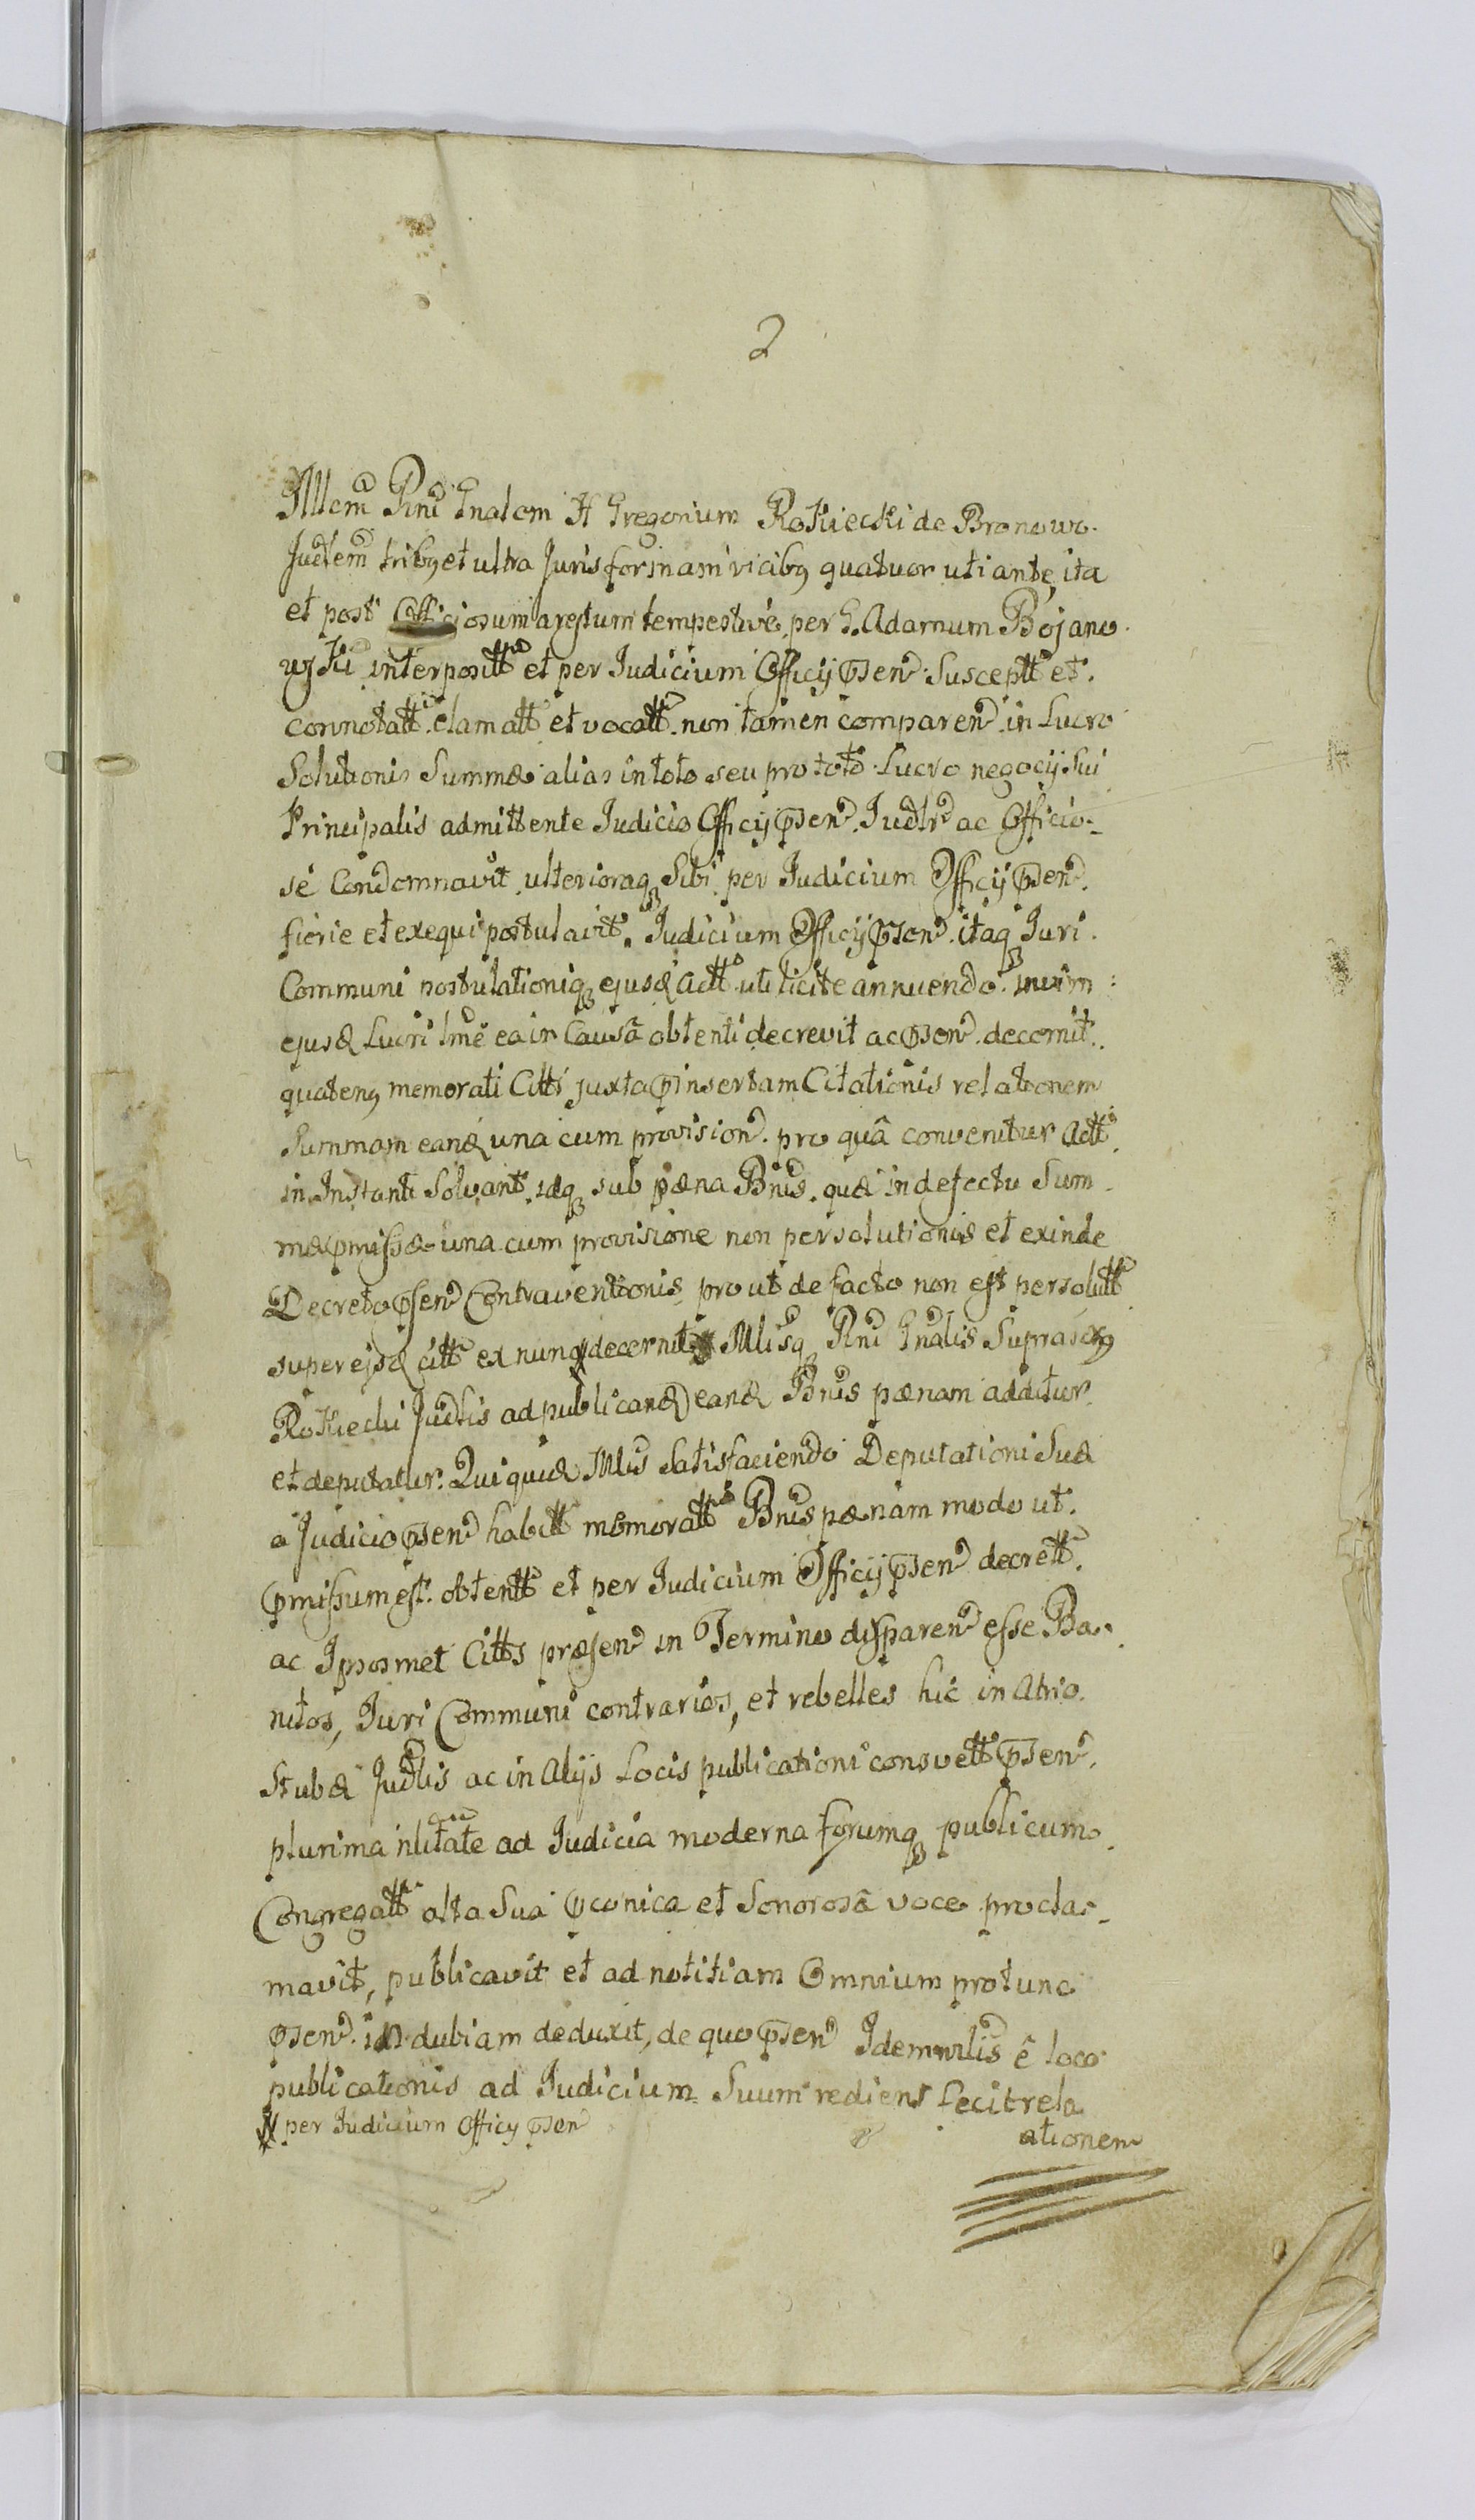 2
Illem Rni Gnalem H Gregorium Rokiecki de Bronowo
Judlem tribq et ultra Juris formam vicibq quatuor uti ante, ita
et post Officiosum arestum tempestive per G. Adamum Bojano
wski interposittu et per Judicium Officij Psen. Susceptt et
connotatt. clamatt et vocatt. non tamen comparen. in Lucro
Solutionis Summæ alias in toto seu pro toto Lucro negocij Sui
Principalis admittente Judicio Officij Psen. Judlr ac Officio-
se Condemnavit, ulterioraq Sibi per Judicium Officij Psen.
fierie et exequi postulavit. Judicium Officij Psen. itaq Juri
Communi postulationiq ejusd Actt. uti licite annuendo. in vim
ejusd Lucri lme ea in Causâ obtenti decrevit ac Psen. decernit.
quatenq memorati Citti juxta Pinsertam Citationis relationem
Summam eand una cum provision. pro quâ convenitur Actt.
in Instanti Solvant. idq sub pœna Bnis. quæ in defectu Sum
mæ pmissæ una cum provisione non persolutionis et exinde
Decreto Psen Contraventionis, prout de facto non est persolutt
super ejsd citt ex nunc decernit Illisq Rni Gnalis Suprascrq
Rokiecki Judlis ad publicand eand Bnis pœnam additur
et deputatur. Qui quid Illis Satisfaciendo Deputationi Suæ
a Judicio Psen habitt memoratt Bnis pœnam modo ut
Pmissum est. obtentt et per Judicium Officij Psen decrett.
ac Ipsosmet Citts præsen in Termino disparen esse Ba-
nitos, Juri Communi contrarios, et rebelles hic in Atrio
Stubæ Judlis ac in Alijs Locis publicationi consvett Psen.
plurima nlitate ad Judicia moderna forumq publicum
Congregatt alta Sua Pconica et Sonorosâ voce procla-
mavit, publicavit et ad notitiam Omnium protunc
Psen. indubiam deduxit, de quo Psen Idem mlis ê loco
publicationis ad Judicium Suum rediens fecit rela
ationem
per Judicium Officij Psen